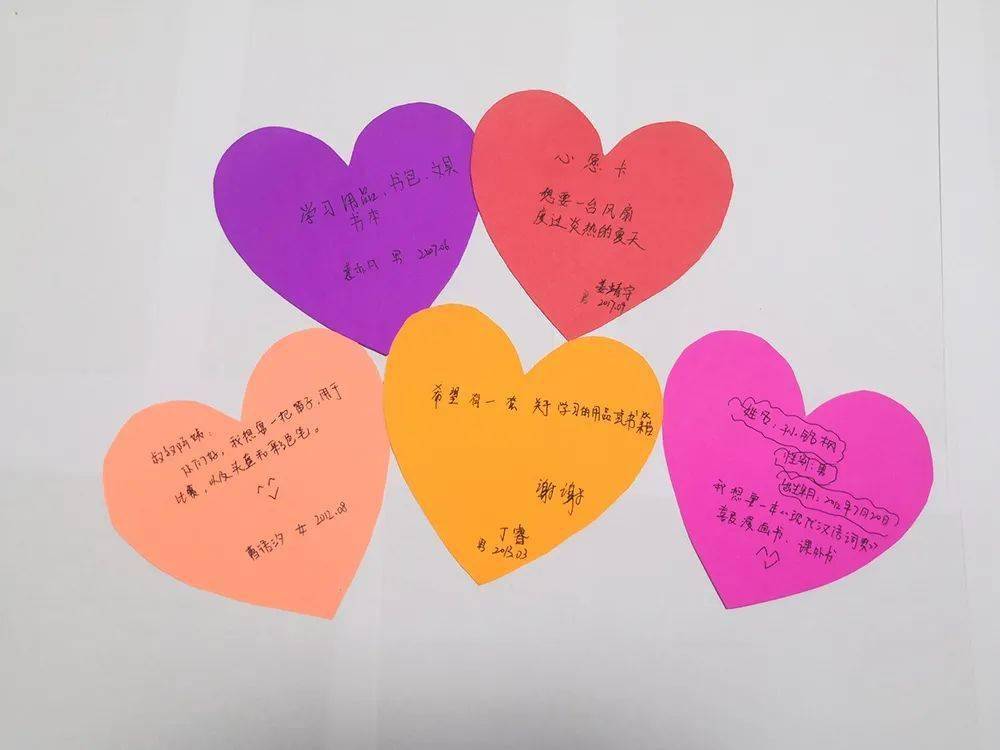 学习用品、书包、文具
书本
男 2207.06
心愿卡
想要一台风扇
度过炎热的夏天
姜靖宇
男 2017.09
叔叔阿姨:
你们好,我想要一把笛子,用于
比赛,以及头盔和彩色笔。
语汐 女 2012.08
希望有一套关于学习的用品或书籍
谢谢
丁睿
男 2013.03
姓名:孙 枫
性别:男
出生年月:2012年7月20日
我想要一本《现代汉语词典》
喜爱漫画书、课外书